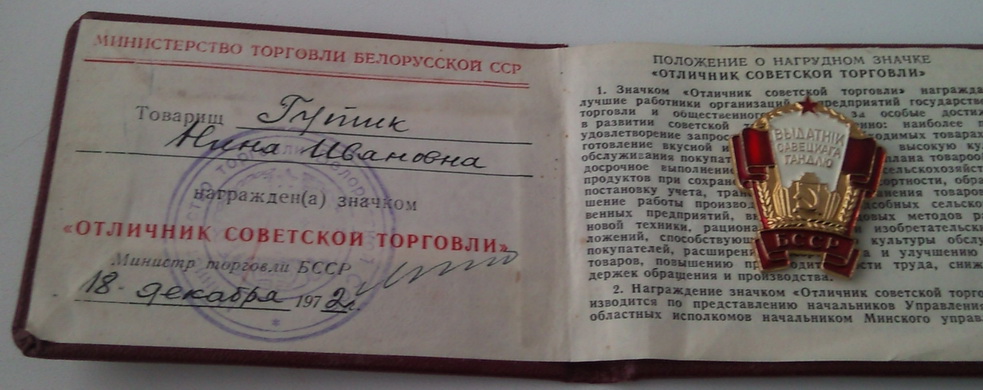 МИНИСТЕРСТВО ТОРГОВЛИ БЕЛОРУССКОЙ ССР
Товарищ Гутик
Нина Ивановна
награжден(а) значком
«ОТЛИЧНИК СОВЕТСКОЙ ТОРГОВЛИ»
Министр торговли БССР
18 декабря 1972 г.
ПОЛОЖЕНИЕ О НАГРУДНОМ ЗНАЧКЕ
«ОТЛИЧНИК СОВЕТСКОЙ ТОРГОВЛИ»
1. Значком «Отличник советской торговли» награжда
лучшие работники организаций предприятий государстве
торговли и общественного за особые дости
в развитии советской наиболее п
удовлетворение запрос одимых товарах
готовление вкусной и высокую ку
обслуживания покупат плана товароо
досрочное выполнение сельскохозяйст
продуктов при сохране ортности, обра
постановку учета, тра нения товаров
шение работы произво асобных сельско
венных предприятий, в овых методов ра
новой техники, рацион изобретательски
ложений, способствующ культуры обслу
покупателей, расширени а и улучшению
товаров, повышению пр одит ости труда, сниж
держек обращения и производства.
2. Награждение значком «Отличник советской торго
изводится по представлению начальников Управлени
областных исполкомов начальником Минского управ
ВЫДАТНІК
САВЕЦКАГА
ГАНДЛЮ
БССР